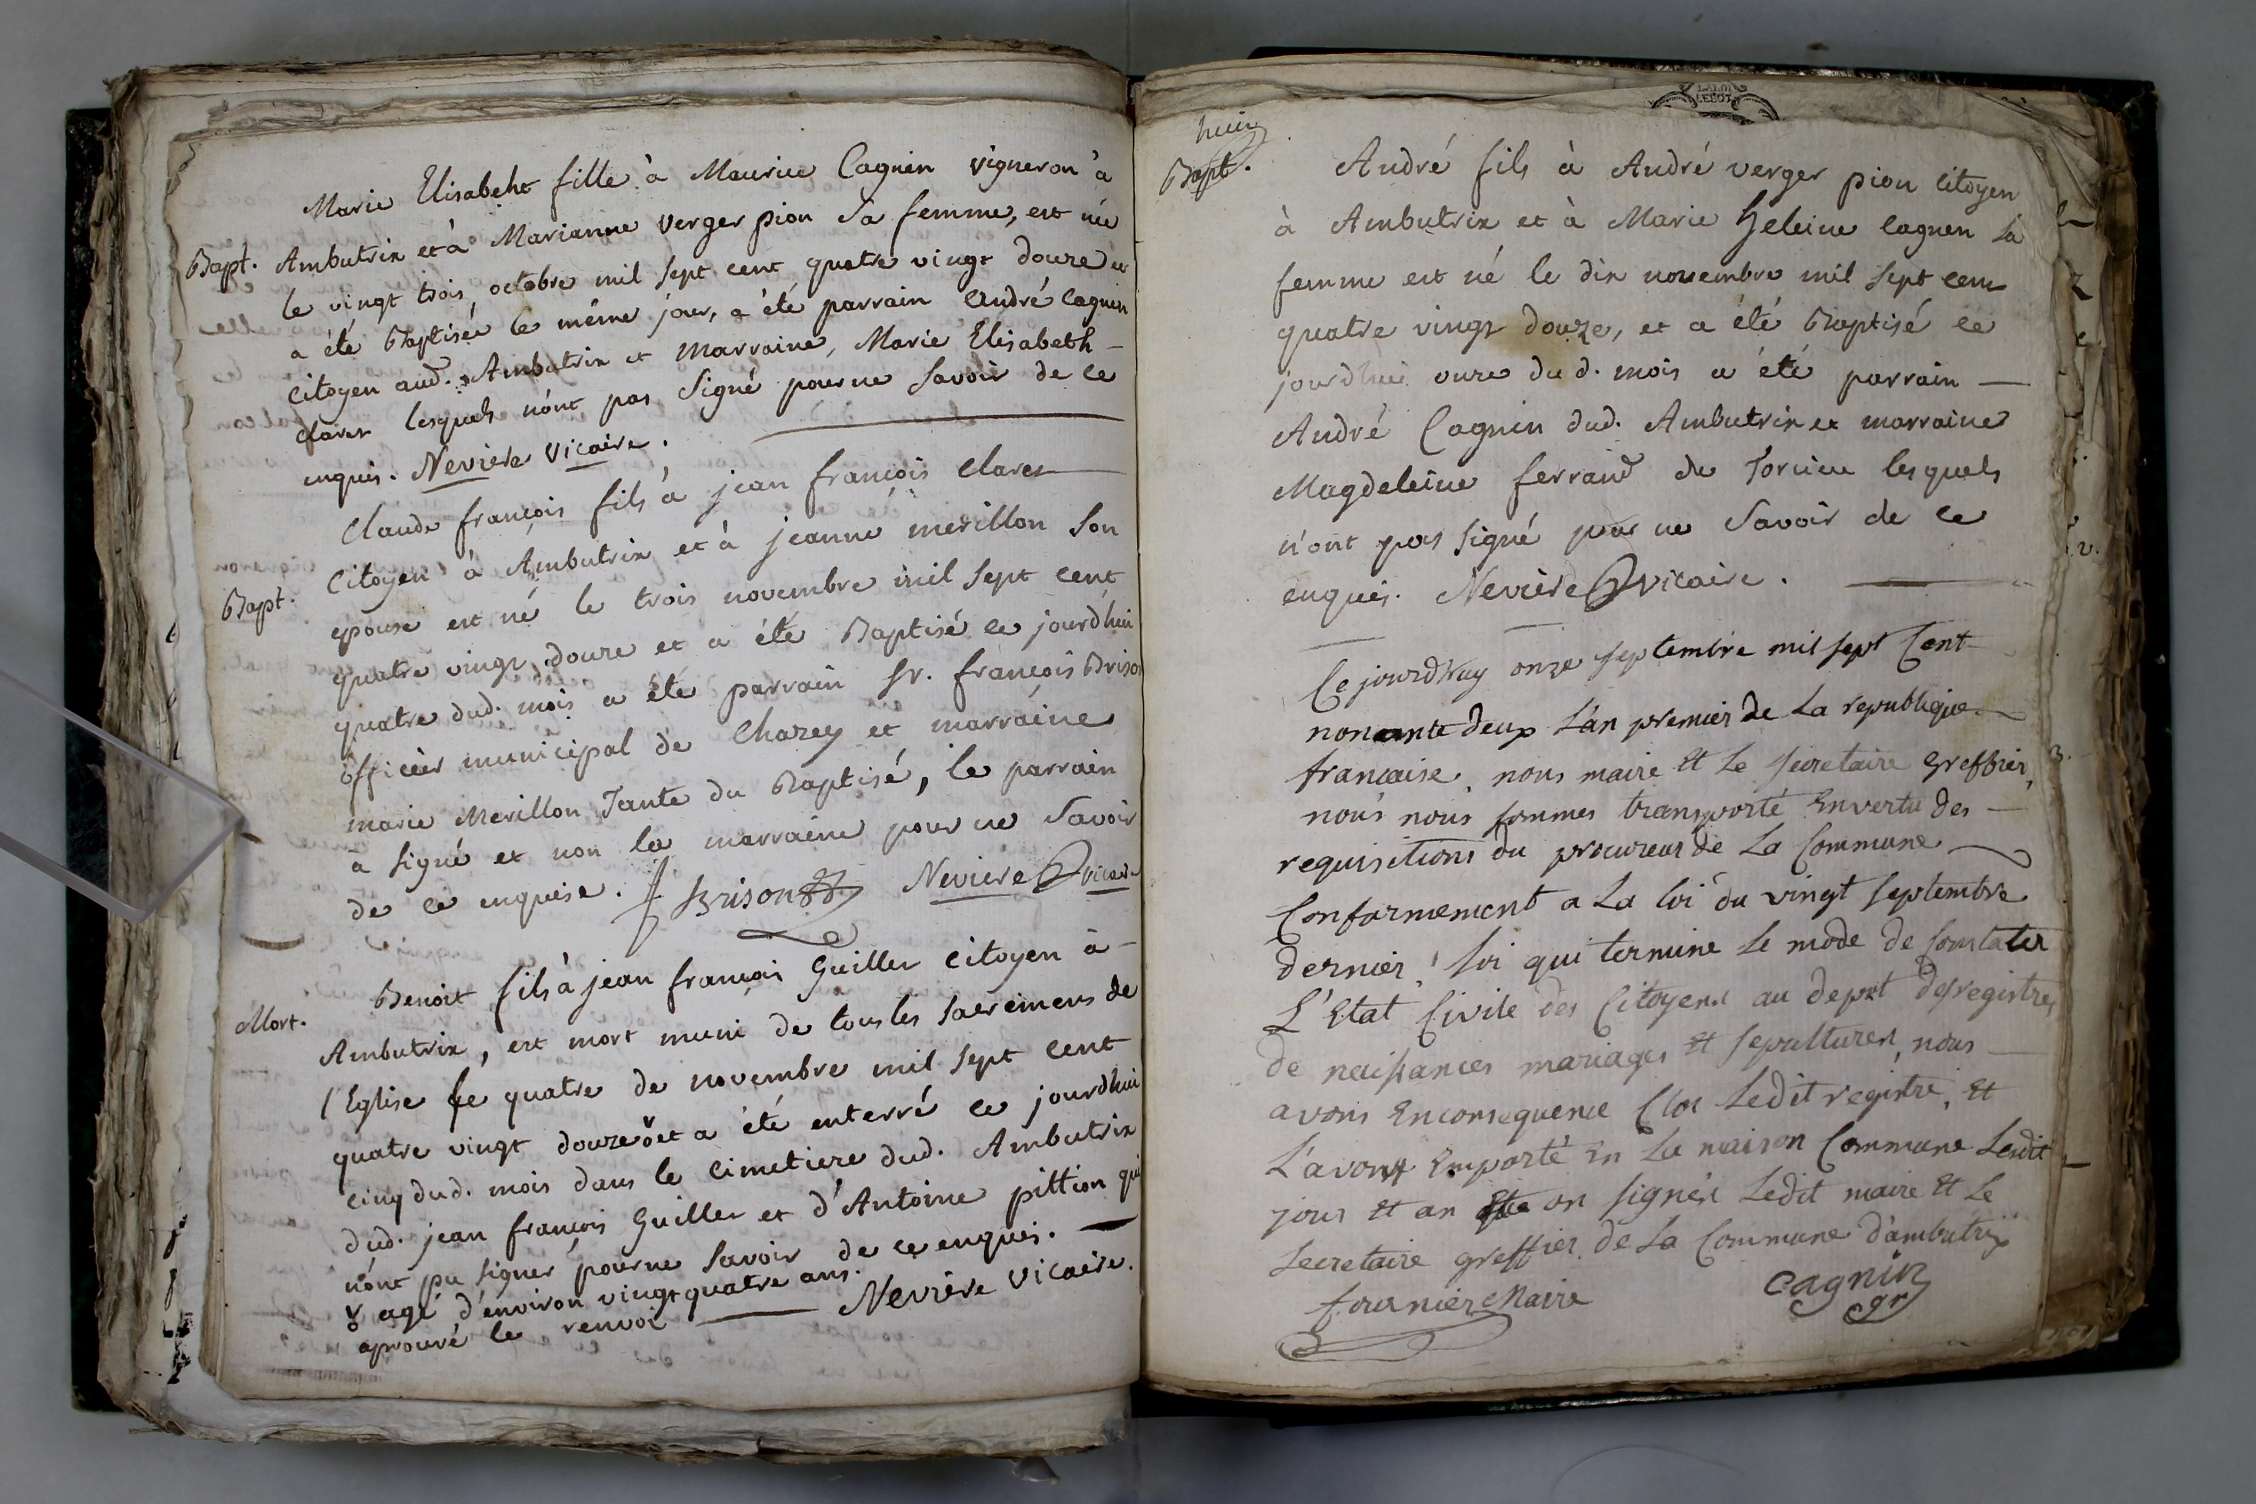 Marie Elisabeht fille à Maurice Cagnin vigneron à
Bapt. Ambutrix et à Marianne verger pion sa femme, est née
le vingt trois, octobre mil sept cent quatre vingt douze et
a été Baptisée le même jour, a été parrain André Cagnin
citoyen aud. Ambutrix et marraine, Marie Elisabeth -
claret lesquels n'ont pas signé pour ne savoir de ce
enquis. Nevière vicaire.
Claude françois fils à jean françois claret
Bapt. Citoyen à Ambutrix et à jeanne merillon son
epouse est né le trois novembre mil sept cent
quatre vingt douze et a été Baptisé ce jourd'hui
quatre dud. mois a été parrain sr. françois Brison
officier municipal de Chazey et marraine
marie Merillon Tante du Baptisé, le parrain
a signé et non la marraine pour ne savoir
de ce enquise. f Brison Nevière vicaire
Benoit fils à jean françois Guillet citoyen à -
Mort. Ambutrix, est mort muni de tous les sacremens de
l'Eglise le quatre de novembre mil sept cent
quatre vingt douze et a été enterré ce jourdhui
cinq dud. mois dans le cimetiere dud. Ambutrix
dud. jean françois Guillet et d'Antoine pittion qui
n'ont pu signer pour ne savoir de ce enquis.
agé d'environ vingt quatre ans.
aprouvé le renvoi Nevière vicaire.
huit
Bapt. André fils à André verger pion citoyen
à Ambutrix et à Marie heleine cagnin sa
femme est né le dix novembre mil sept cent
quatre vingt douze, et a été Baptisé ce
jourdhui onze dud. mois a été parrain
André Cagnin dud. Ambutrix et marraine
Magdeleine ferrand de Torcieu lesquels
n'ont pas signé pour ne savoir de ce
enquis. Nevière vicaire.
Ce jourdhuy onze septembre mil sept Cent
nonante deux L'an premier de La republique
francaise, nous maire Et Le secretaire greffier,
nous nous sommes transporté En vertu des
requisitions du procureur de La Commune
Conformement a La loi du vingt septembre
dernier, loi qui termine Le mode de Constater
L'Etat Civile des Citoyens au depot des registres
de naissances mariages Et sepultures, nous
avons En consequence Clos Ledit registre, Et
L'avons Emporté En La maison Commune Lesdit
jour Et an on signés Ledit maire Et Le
secretaire greffier, de La Commune d'ambutrix
fournier Maire cagnin
gr